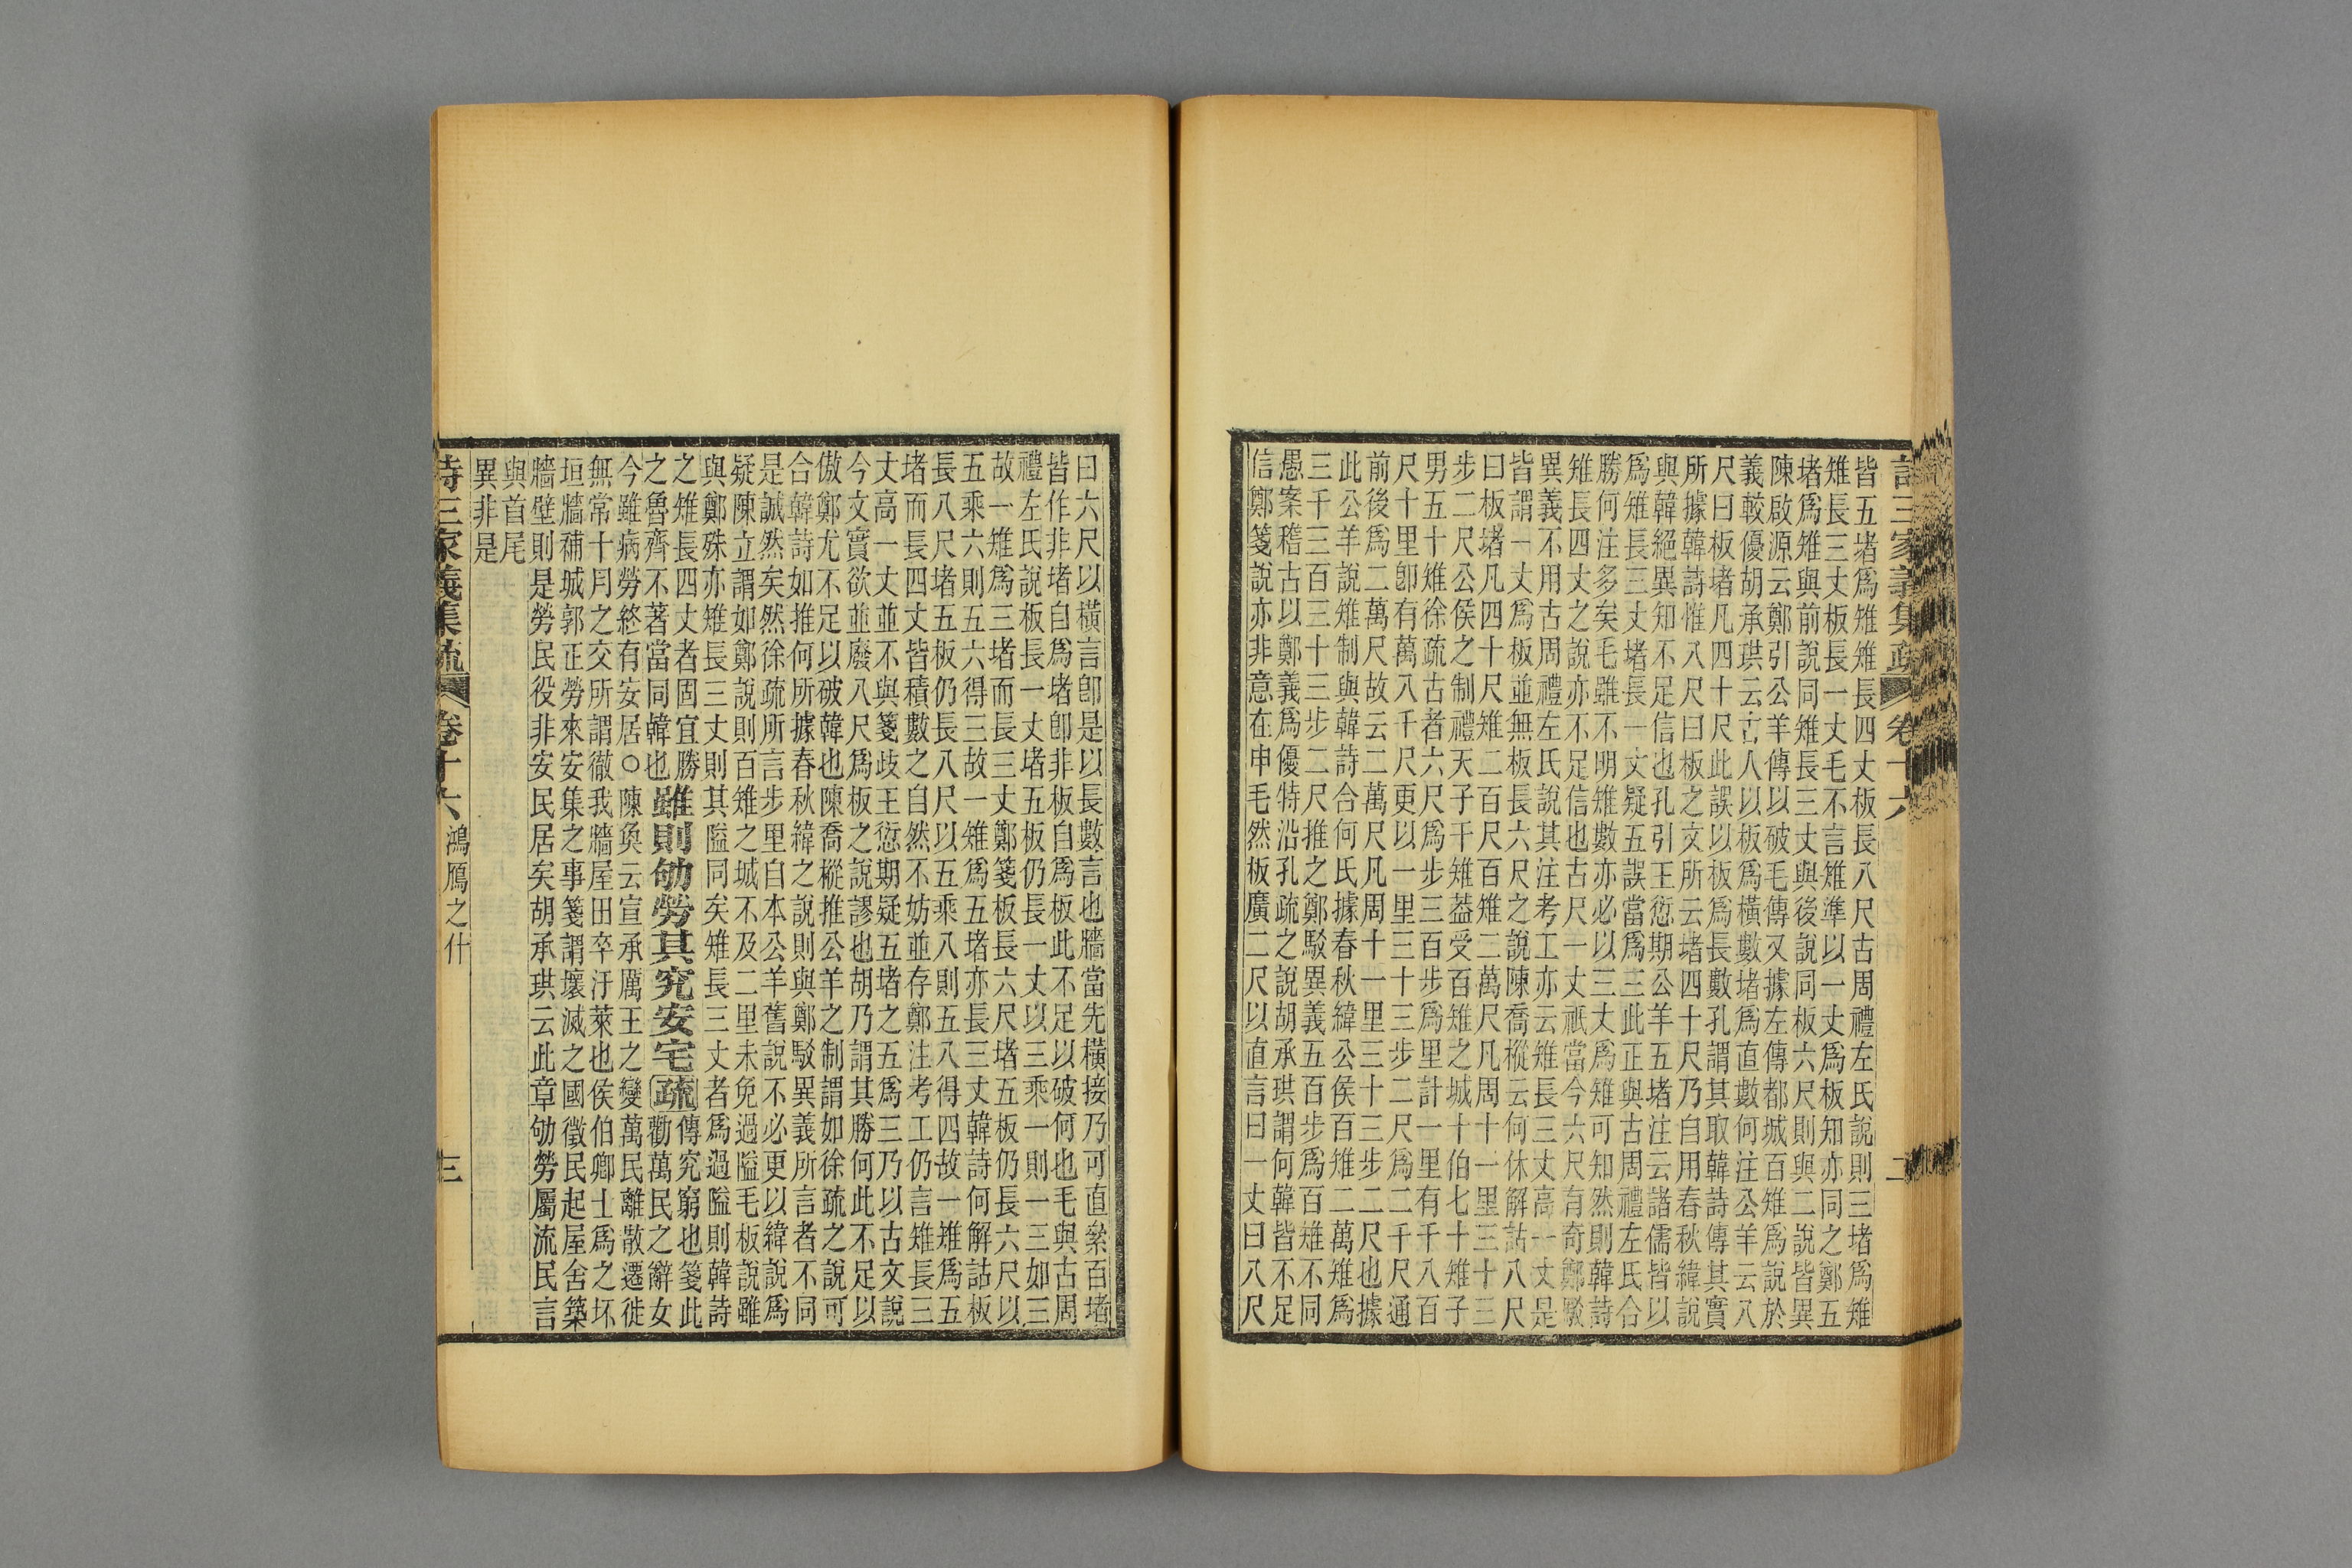 詩三家義集疏 卷十六 二
皆五堵爲雉雉長四丈板長八尺古周禮左氏說則三堵爲雉
雉長三丈板長一丈毛不言雉準以一丈爲板知亦同之鄭五
堵爲雉與前說同雉長三丈與後說同板六尺則與二說皆異
陳啟源云鄭引公羊傳以破毛傳又據左傳都城百雉爲說於
義較優胡承珙云古人以板爲橫數堵爲直數何注公羊云八
尺曰板堵凡四十尺此誤以板爲長數孔謂其取韓詩傳其實
所據韓詩惟八尺曰板之文所云堵四十尺乃自用春秋緯說
與韓絕異知不足信也孔引王愆期公羊五堵注云諸儒皆以
爲雉長三丈堵長一丈疑五誤當爲三此正與古周禮左氏合
勝何注多矣毛雖不明雉數亦必以三丈爲雉可知然則韓詩
雉長四丈之說亦不足信也古尺一丈祇當今六尺有奇鄭駮
異義不用古周禮左氏說其注考工亦云雉長三丈高一丈是
皆謂一丈爲板並無板長六尺之說陳喬樅云何休解詁八尺
曰板堵凡四十尺雉二百尺百雉二萬尺凡周十一里三十三
步二尺公侯之制禮天子千雉葢受百雉之城十伯七十雉子
男五十雉徐疏古者六尺爲步三百步爲里計一里有千八百
尺十里卽有萬八千尺更以一里三十三步二尺爲二千尺通
前後爲二萬尺故云二萬尺凡周十一里三十三步二尺也據
此公羊說雉制與韓詩合何氏據春秋緯公侯百雉二萬雉爲
三千三百三十三步二尺推之鄭駁異義五百步爲百雉不同
愚案稽古以鄭義爲優特沿孔疏之說胡承珙謂何韓皆不足
信鄭箋說亦非意在申毛然板廣二尺以直言曰一丈曰八尺
曰六尺以橫言卽是以長數言也牆當先橫接乃可直絫百堵
皆作非堵自爲堵卽非板自爲板此不足以破何也毛與古周
禮左氏說板長一丈堵五板仍長一丈以三乘一則一三如三
故一雉爲三堵而長三丈鄭箋板長六尺堵五板仍長六尺以
五乘六則五六得三故一雉爲五堵亦長三丈韓詩何解詁板
長八尺堵五板仍長八尺以五乘八則五八得四故一雉爲五
堵而長四丈皆積數之自然不妨並存鄭注考工仍言雉長三
丈高一丈並不與箋歧王愆期疑五堵之五爲三乃以古文說
今文實欲並廢八尺爲板之說謬也胡乃謂其勝何此不足以
傲鄭尤不足以破韓也陳喬樅推公羊之制謂如徐疏之說可
合韓詩如推何所據春秋緯之說則與鄭駁異義所言者不同
是誠然矣然徐疏所言步里自本公羊舊說不必更以緯說爲
疑陳立謂如鄭說則百雉之城不及二里未免過隘毛板說雖
與鄭殊亦雉長三丈則其隘同矣雉長三丈者爲過隘則韓詩
之雉長四丈者固宜勝
之魯齊不著當同韓也
雖則劬勞其究安宅疏
傳究窮也箋此
勸萬民之辭女
今雖病勞終有安居○陳奐云宣承厲王之變萬民離散遷徙
無常十月之交所謂徹我牆屋田卒汙萊也侯伯卿士爲之坏
垣牆補城郭正勞來安集之事箋謂壞滅之國徵民起屋舍築
牆壁則是勞民役非安民居矣胡承珙云此章劬勞屬流民言
與首尾
異非是
詩三家義集疏 卷十六 鴻鴈之什 三